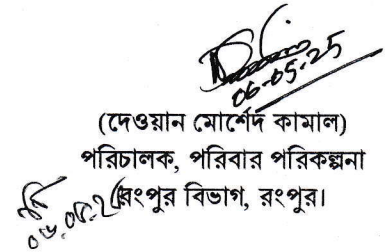 06-05-25
(দেওয়ান মোর্শেদ কামাল)
পরিচালক, পরিবার পরিকল্পনা
রংপুর বিভাগ, রংপুর।